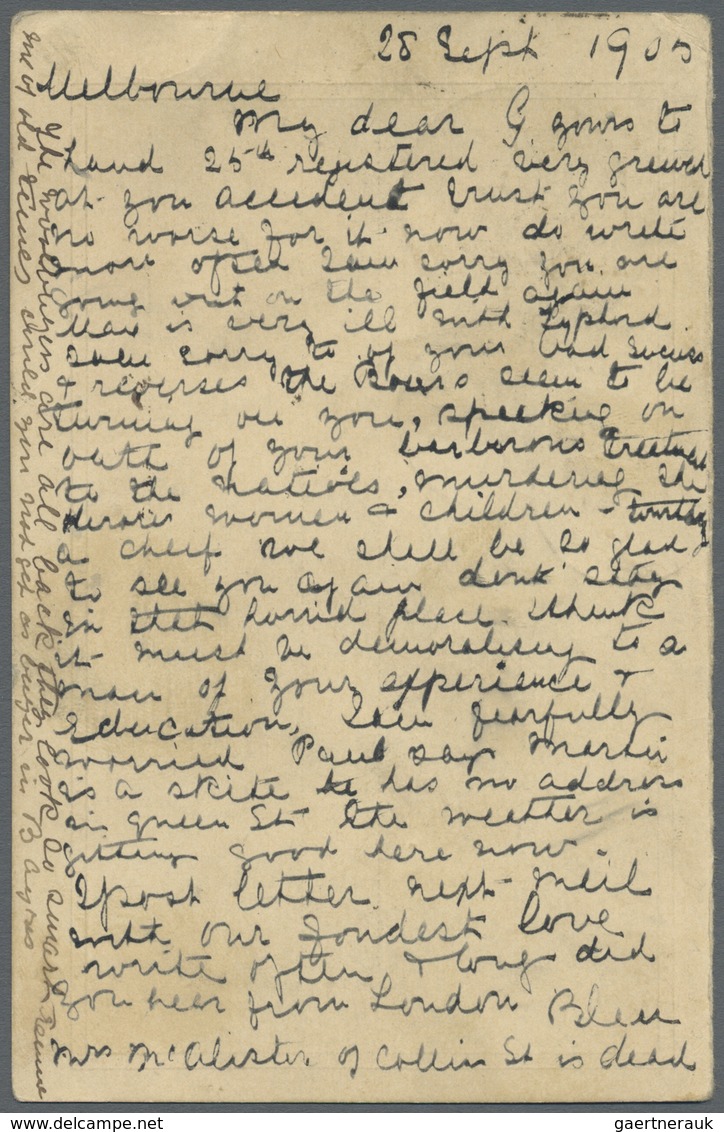 28 Sept 1905
Melbourne
My dear G yours to
hand 25th registered very grieved
at you accedent trust you are
no worse for it now do write
more often I am sorry you are
going out on the field again
Max is very ill with Typhord
I am sorry to of your bad sucuss
+ reverses the Boers seem to be
turning on you, speeking on
of your barberous treetment
to the natives, murdering the
women + children -
a cheif we shell be so glad
to see you again dont stay
in that horrid place. I think
it must be demoralising to a
man of your experience +
Education, I am fearfully
worried Paul says Martin
is a skite he has no address
in queen St the weather is
getting good here now.
I post letter next mail
with our fondest love
write often, + long did
you hear from London
Mrs McAlister of Collin St is dead
The are all back they look so smart
me of old times